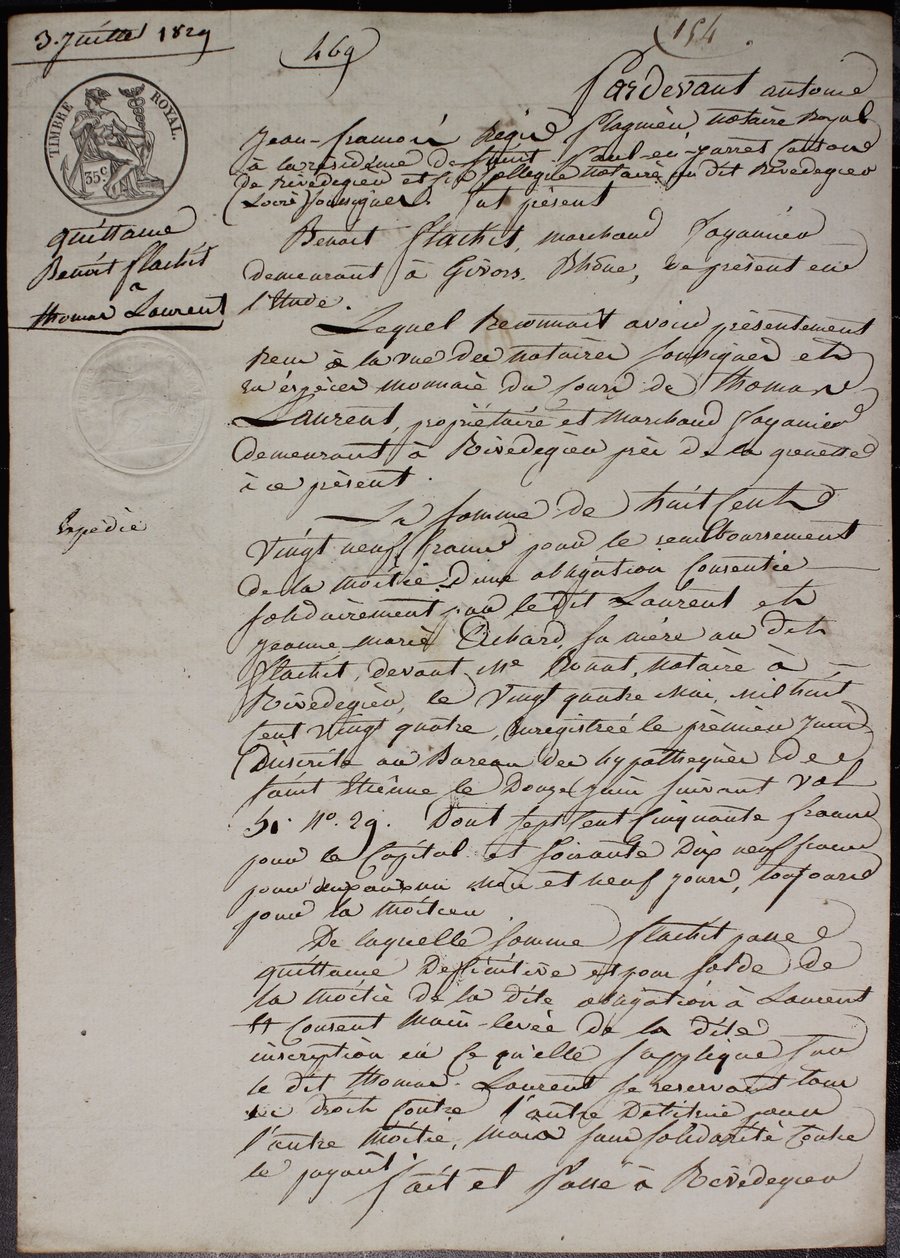 3. Juillet 1829
469
154
TIMBRE ROYAL.
35c
quittance
Benoit flachit
a
thomas Laurent
Expédié
Pardevant antoine
Jean-françois Régis flaguier notaire Royal
à la résidence de saint-Paul-en-jarret Canton
de Rivedegier et son Collegue notaire au dit Rivedegier
(Loire) soussignés. fut présent
Benoit flachit, marchand
demeurant à Givors, Rhône, de présent en
l'étude.
Lequel Reconnait avoir présentement
Recu à la vue des notaires soussignés et
en éspèces monnaie du jours de thomas
Laurent, propriétaire et marchand
demeurant à Rivedegier près de la grenette
ici présent.
La somme de huit Cent
vingt neuf francs pour le remboursement
de la moitié d'une obligation Consentie
solidairement par le dit Laurent et
jeanne marie sa mère au dit
flachit, devant Me notaire à
Rivedegier, le vingt quatre mai, mil huit
cent vingt quatre, Enregistrée le premier juin
inscrite au Bureau des hypothèques de
saint Etienne le Douze juin suivant vol
51. No. 29. Dont sept Cent Cinquante francs
pour le Capital et soixante Dix neuf francs
pour deux ans un mois et neuf jours, toujours
pour la moitié
De laquelle somme flachit passe
quittance Deffinitive et pour solde de
la moitié de la dite obligation à Laurent
Et Consent main-levée de la dite
inscription en Ce qu'elle s'applique sur
le dit thomas Laurent se reservant tous
ses droits Contre l'autre Debitrice pour
l'autre moitié, mais sans solidarité Contre
le payant.
fait et passé à Rivedegier